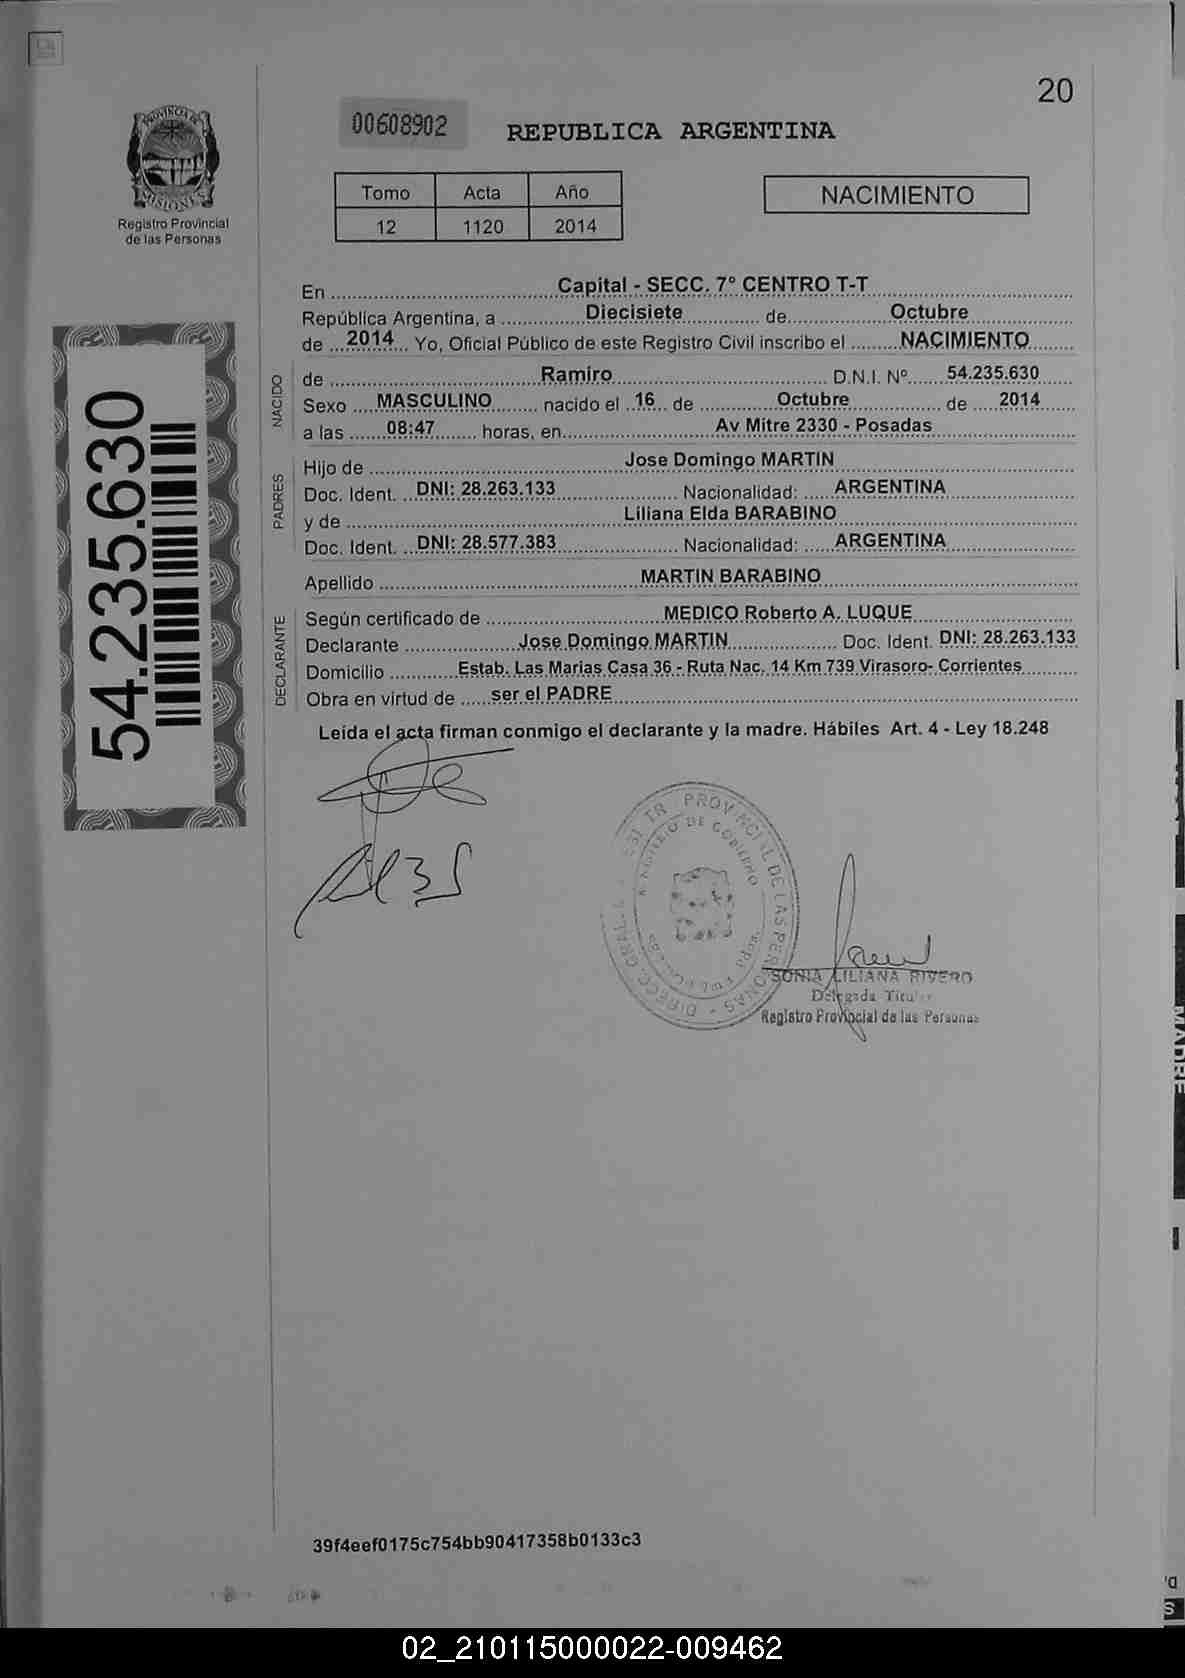 20
PROVINCIA DE
MISIONES
Registro Provincial
de las Personas
00608902
REPUBLICA ARGENTINA
Tomo Acta Año
12 1120 2014
NACIMIENTO
54.235.630
En Capital - SECC. 7º CENTRO T-T
República Argentina, a Diecisiete de Octubre
de 2014 Yo, Oficial Público de este Registro Civil inscribo el NACIMIENTO
NACIDO
de Ramiro D.N.I. Nº 54.235.630
Sexo MASCULINO nacido el 16 de Octubre de 2014
a las 08:47 horas, en Av Mitre 2330 - Posadas
PADRES
Hijo de Jose Domingo MARTIN
Doc. Ident. DNI: 28.263.133 Nacionalidad: ARGENTINA
y de Liliana Elda BARABINO
Doc. Ident. DNI: 28.577.383 Nacionalidad: ARGENTINA
Apellido MARTIN BARABINO
DECLARANTE
Según certificado de MEDICO Roberto A. LUQUE
Declarante Jose Domingo MARTIN Doc. Ident. DNI: 28.263.133
Domicilio Estab. Las Marias Casa 36 - Ruta Nac. 14 Km 739 Virasoro- Corrientes
Obra en virtud de ser el PADRE
Leída el acta firman conmigo el declarante y la madre. Hábiles Art. 4 - Ley 18.248
PROVINCIAL DE LAS PERSONAS
DE GOBIERNO
SONIA LILIANA RIVERO
Delegada Titular
Registro Provincial de las Personas
MADRE
39f4eef0175c754bb90417358b0133c3
02_210115000022-009462